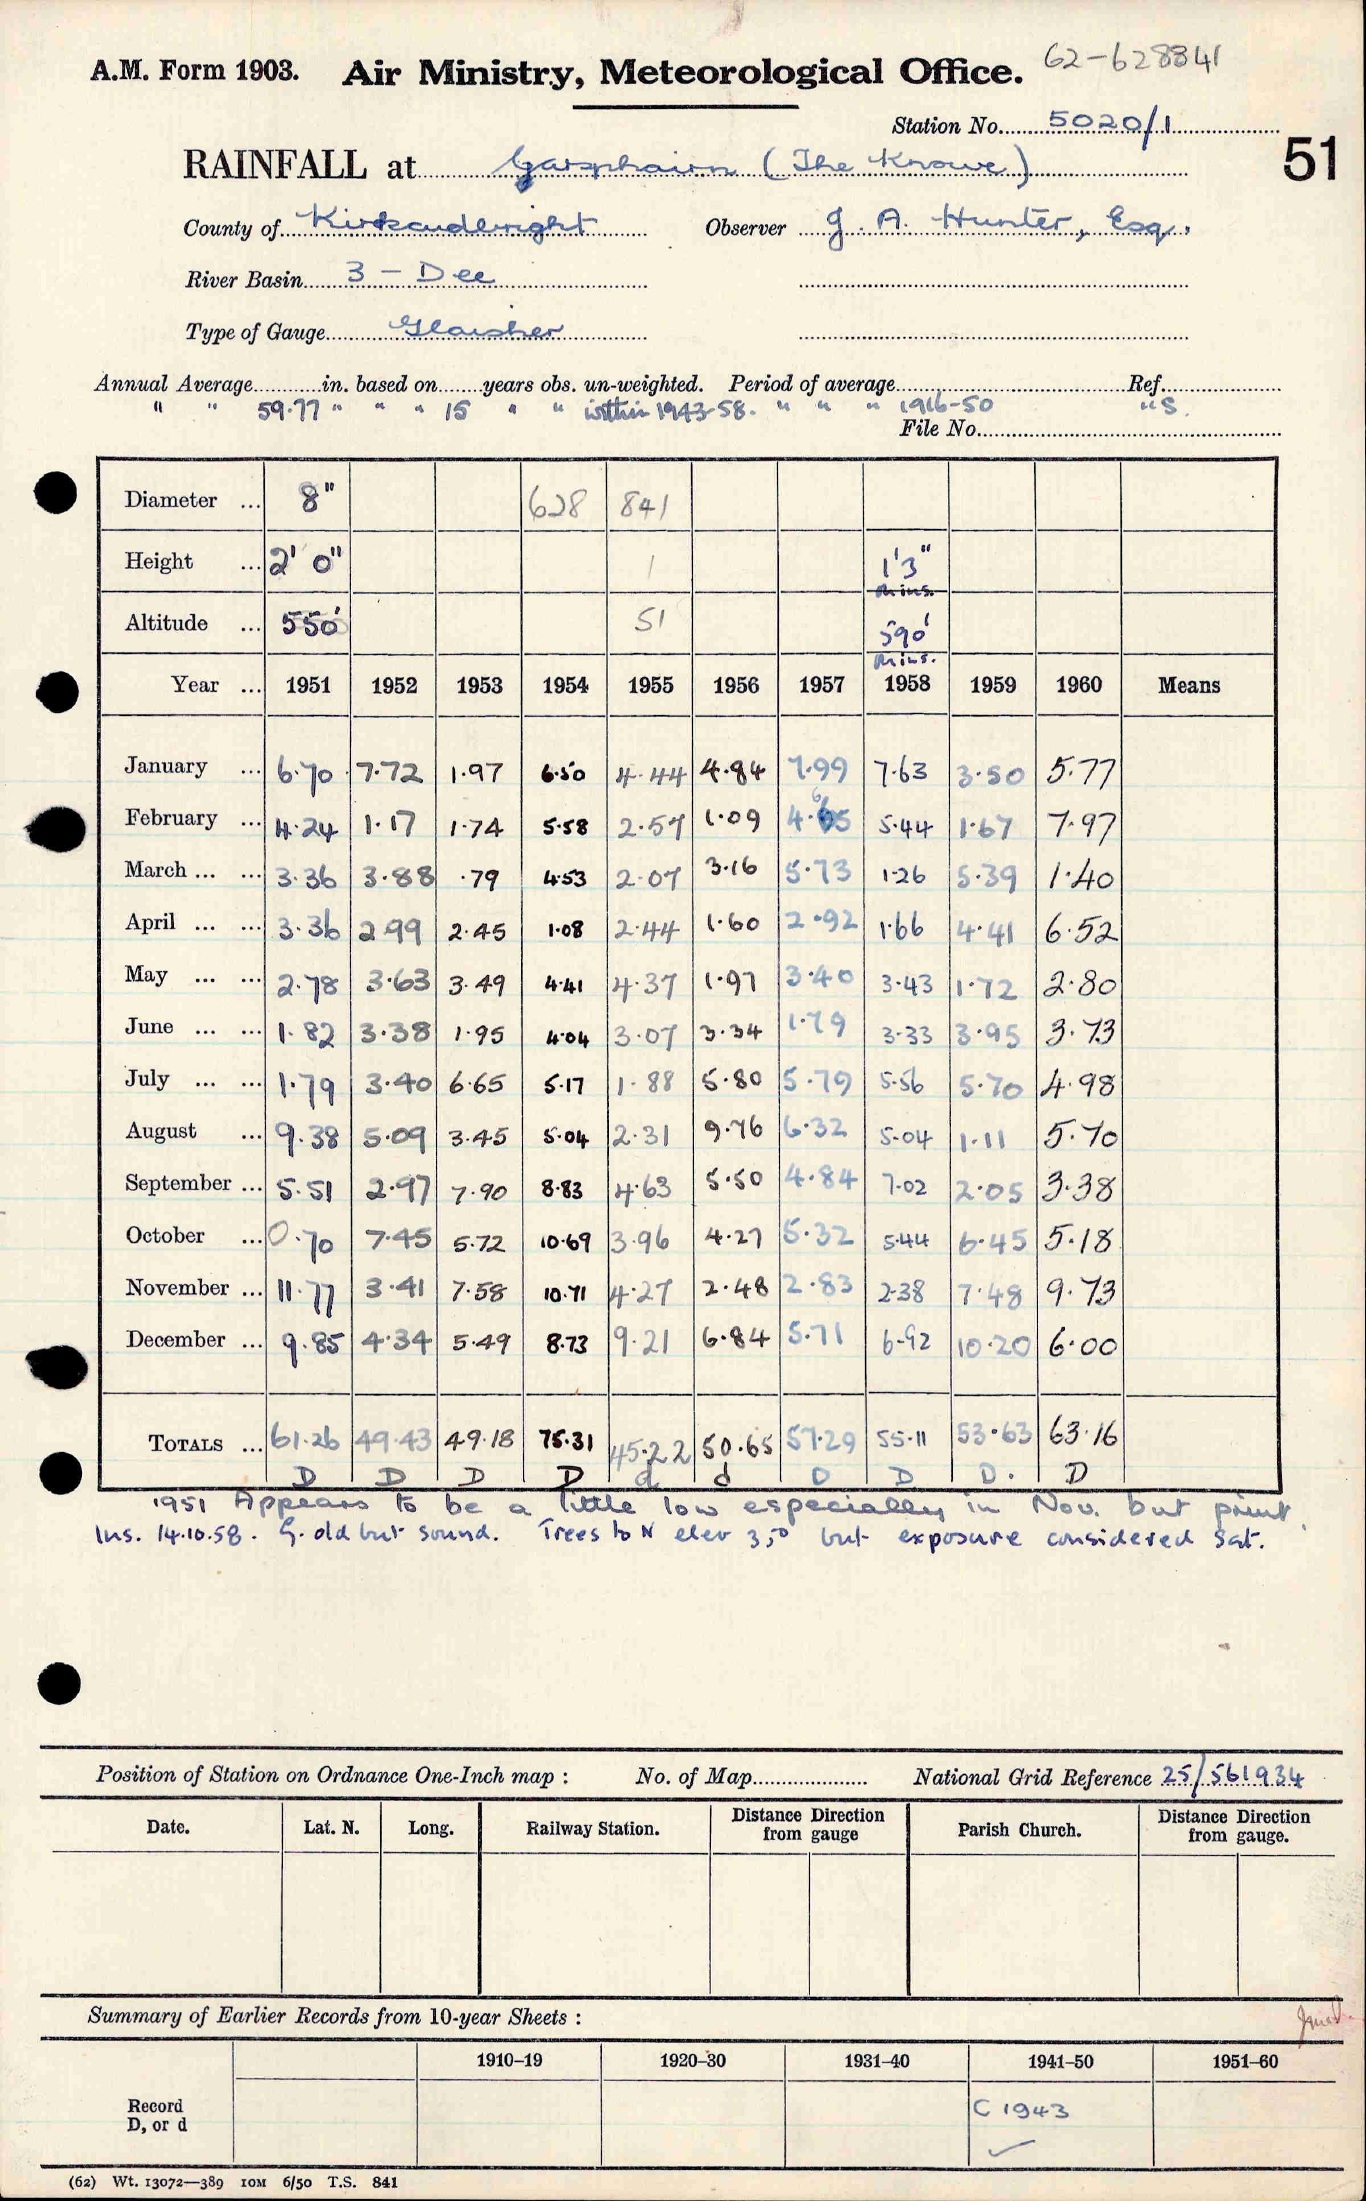 A.M. Form 1903. Air Ministry, Meteorological Office. 62-628841
Station No. 5020/1
RAINFALL at Garsphairn (The Knowe) 51
County of Kirkcudbright Observer J. A. Hunter, Esq.
River Basin 3 - Dee
Type of Gauge Glaisher
Annual Average in. based on years obs. un-weighted. Period of average Ref.
" " 59.77 " " " 15 " " within 1943-58. " " " 1916-50 " S.
File No.
Diameter ... 8" 628 841
Height ... 2' 0" 1 1'3" Mins.
Altitude ... 550' 51 590' Mins.
Year ... 1951 1952 1953 1954 1955 1956 1957 1958 1959 1960 Means
January ... 6.70 7.72 1.97 6.50 4.44 4.84 7.99 7.63 3.50 5.77
February ... 4.24 1.17 1.74 5.58 2.57 1.09 4.65 5.44 1.67 7.97
March ... ... 3.36 3.88 .79 4.53 2.07 3.16 5.73 1.26 5.39 1.40
April ... ... 3.36 2.99 2.45 1.08 2.44 1.60 2.92 1.66 4.41 6.52
May ... ... 2.78 3.63 3.49 4.41 4.37 1.97 3.40 3.43 1.72 2.80
June ... ... 1.82 3.38 1.95 4.04 3.07 3.34 1.79 3.33 3.95 3.73
July ... ... 1.79 3.40 6.65 5.17 1.88 5.80 5.79 5.56 5.70 4.98
August ... 9.38 5.09 3.45 5.04 2.31 9.76 6.32 5.04 1.11 5.70
September ... 5.51 2.97 7.90 8.83 4.63 5.50 4.84 7.02 2.05 3.38
October ... 0.70 7.45 5.72 10.69 3.96 4.27 5.32 5.44 6.45 5.18
November ... 11.77 3.41 7.58 10.71 4.27 2.48 2.83 2.38 7.48 9.73
December ... 9.85 4.34 5.49 8.73 9.21 6.84 5.71 6.92 10.20 6.00
TOTALS ... 61.26 49.43 49.18 75.31 45.22 50.65 57.29 55.11 53.63 63.16
D D D D d d D D D. D
1951 Appears to be a little low especially in Nov. but print.
Ins. 14.10.58. G. old but sound. Trees to N elev 35° but exposure considered Sat.
Position of Station on Ordnance One-Inch map : No. of Map National Grid Reference 25/561934
Date. Lat. N. Long. Railway Station. Distance Direction from gauge Parish Church. Distance Direction from gauge.
Summary of Earlier Records from 10-year Sheets :
1910–19 1920–30 1931–40 1941–50 1951–60
Record D, or d C 1943 ✓
(62) Wt. 13072—389 10M 6/50 T.S. 841